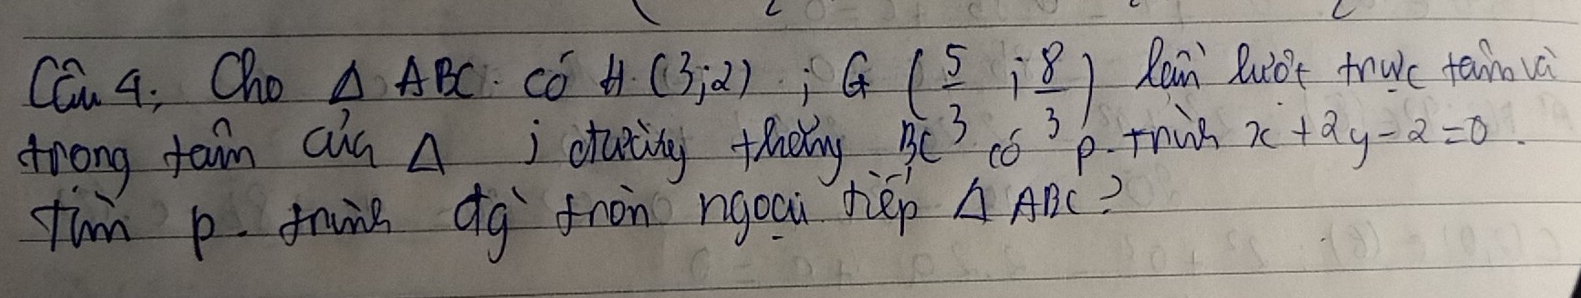 Câu 4: Cho Δ ABC. có H (3;2) ; G (5/3 ; 8/3) lần lượt trực tâm và
trọng tâm của Δ ; đường thẳng BC có p. trình x + 2y - 2 = 0.
Tìm p. trình đg tròn ngoại tiếp Δ ABC?